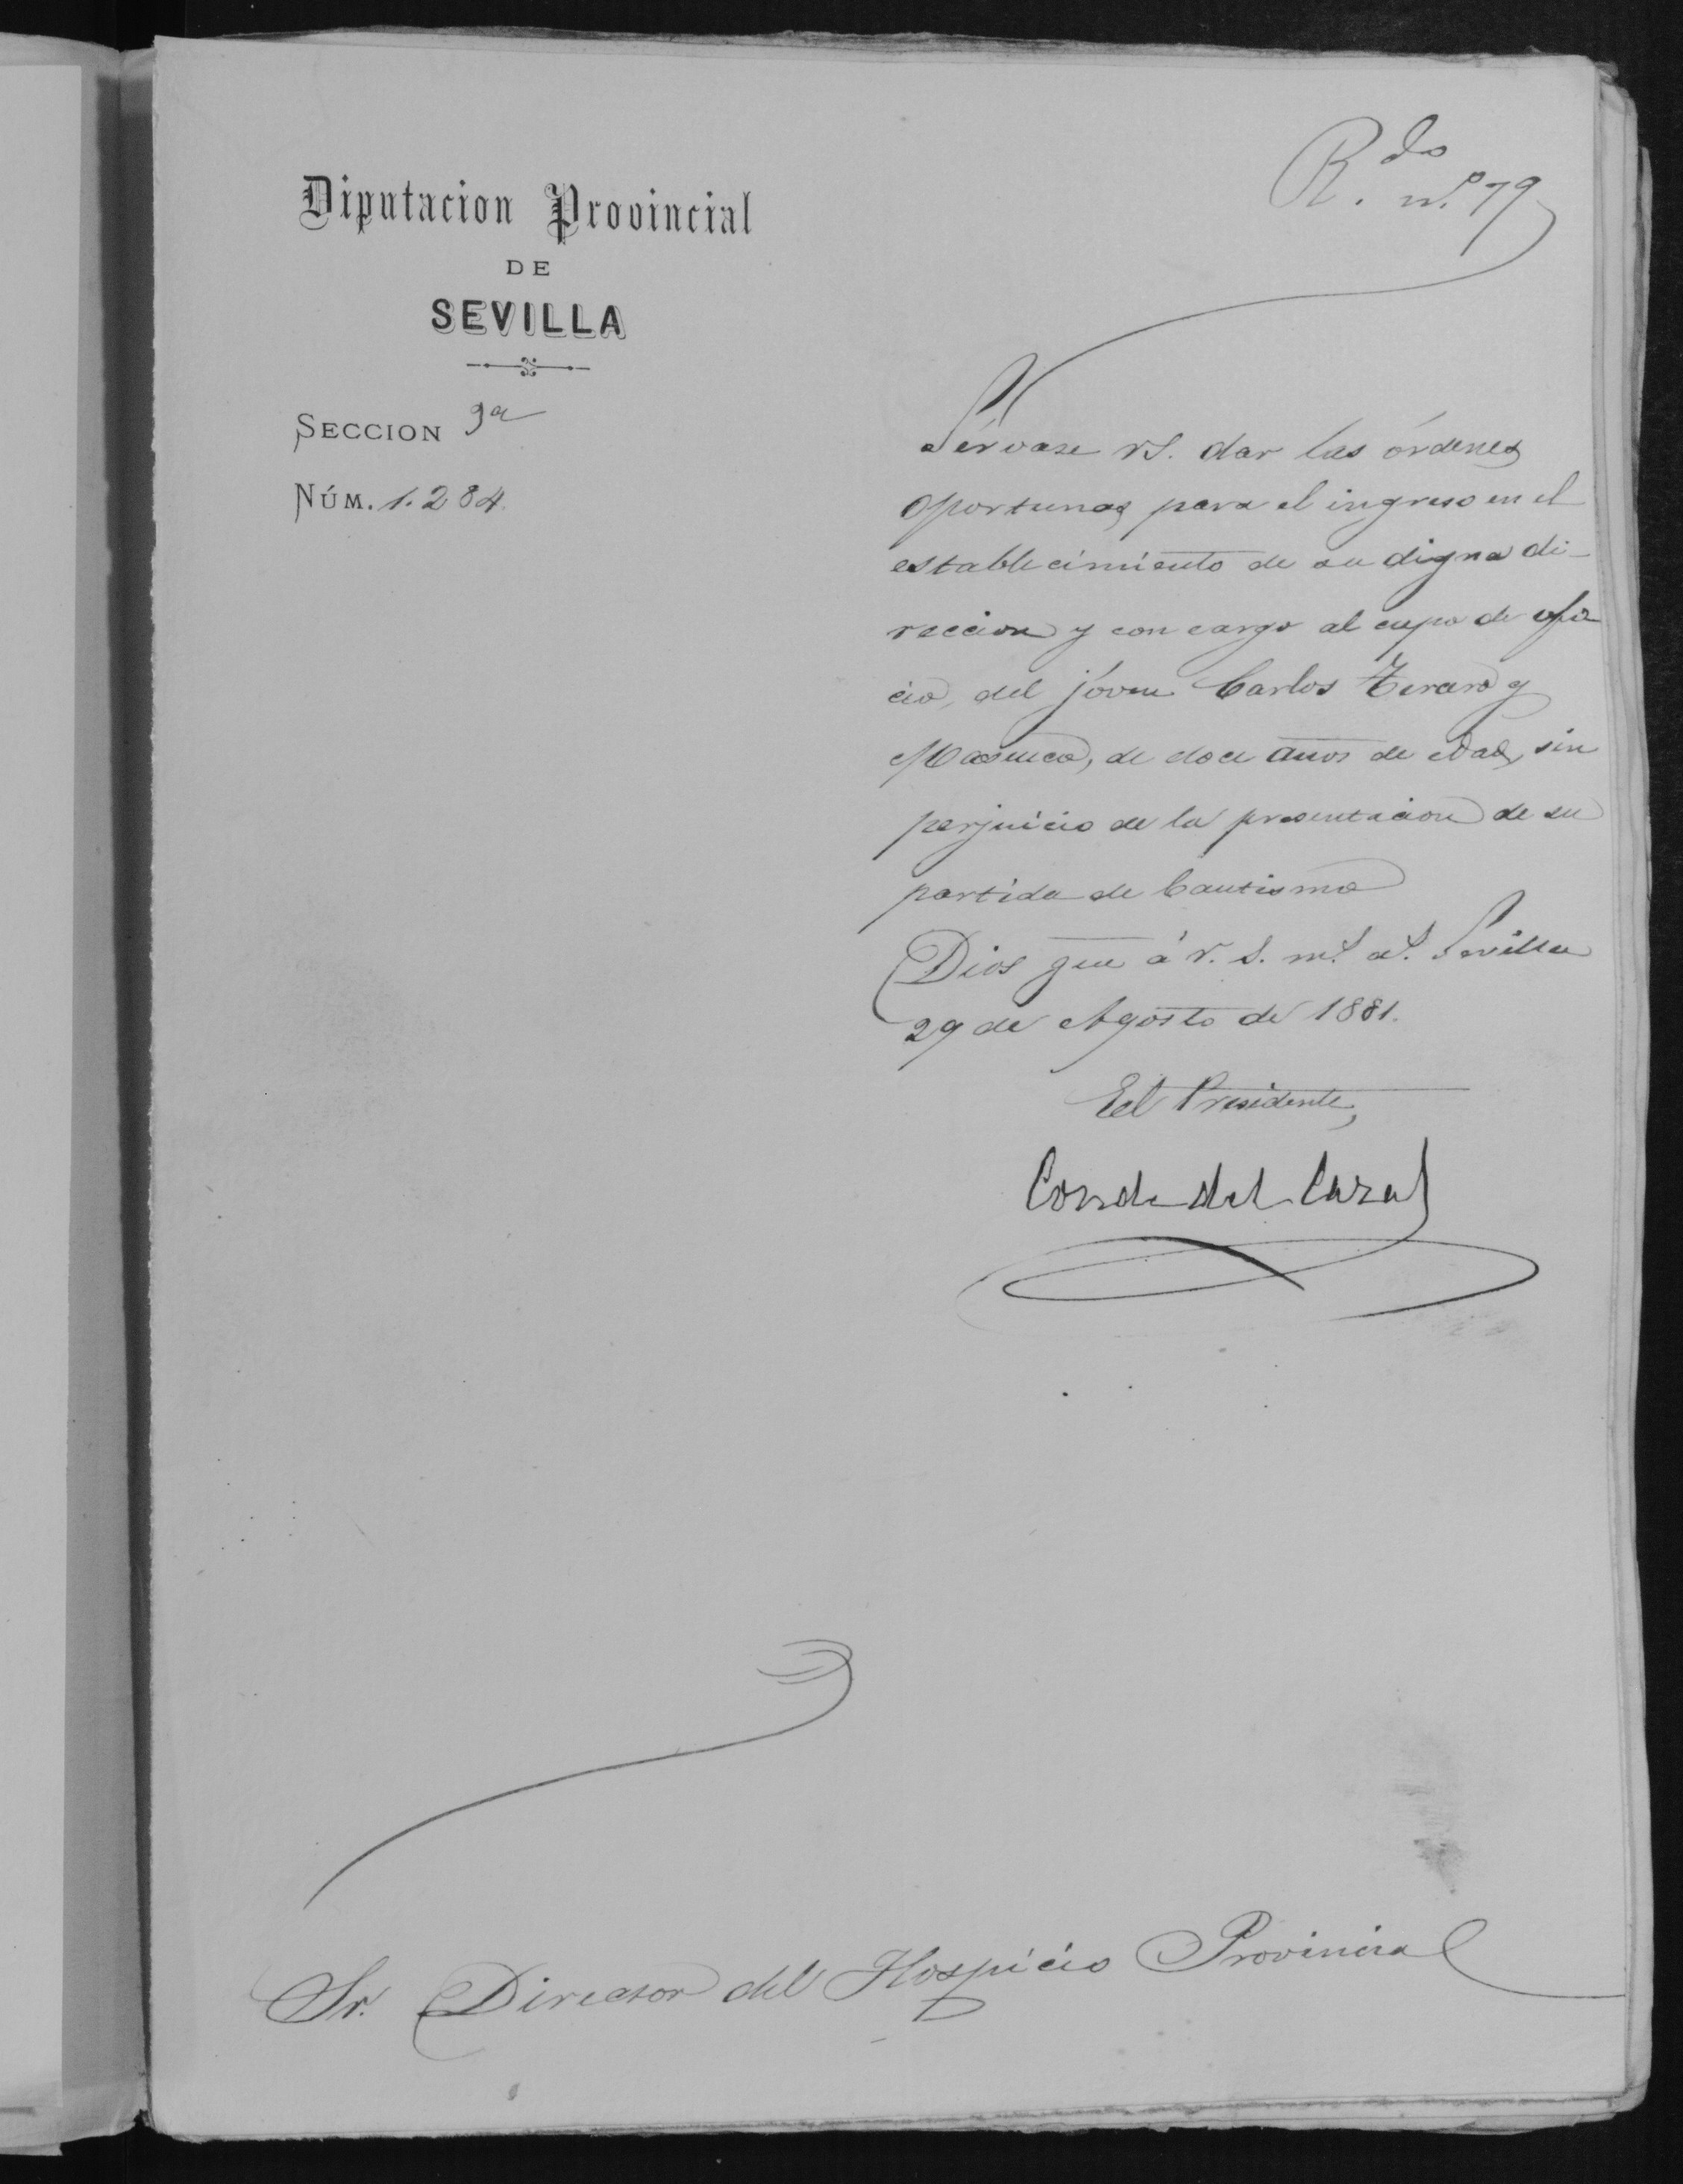 R.do n.º 79
Diputacion Provincial
DE
SEVILLA
SECCION 3ª
NÚM. 1.284.
Sérvase VS. dar las órdenes
oportunas para el ingreso en el
establecimiento de su digna di-
reccion y con cargo al cupo de ofi
cio, del jóven Carlos y
de doce años de edad, sin
perjuicio de la presentacion de su
partida de bautismo
Dios gue á V. S. m.s a.s Sevilla
29 de Agosto de 1881.
El Presidente,
Conde del Cazal
Sr. Director del Hospicio Provincial